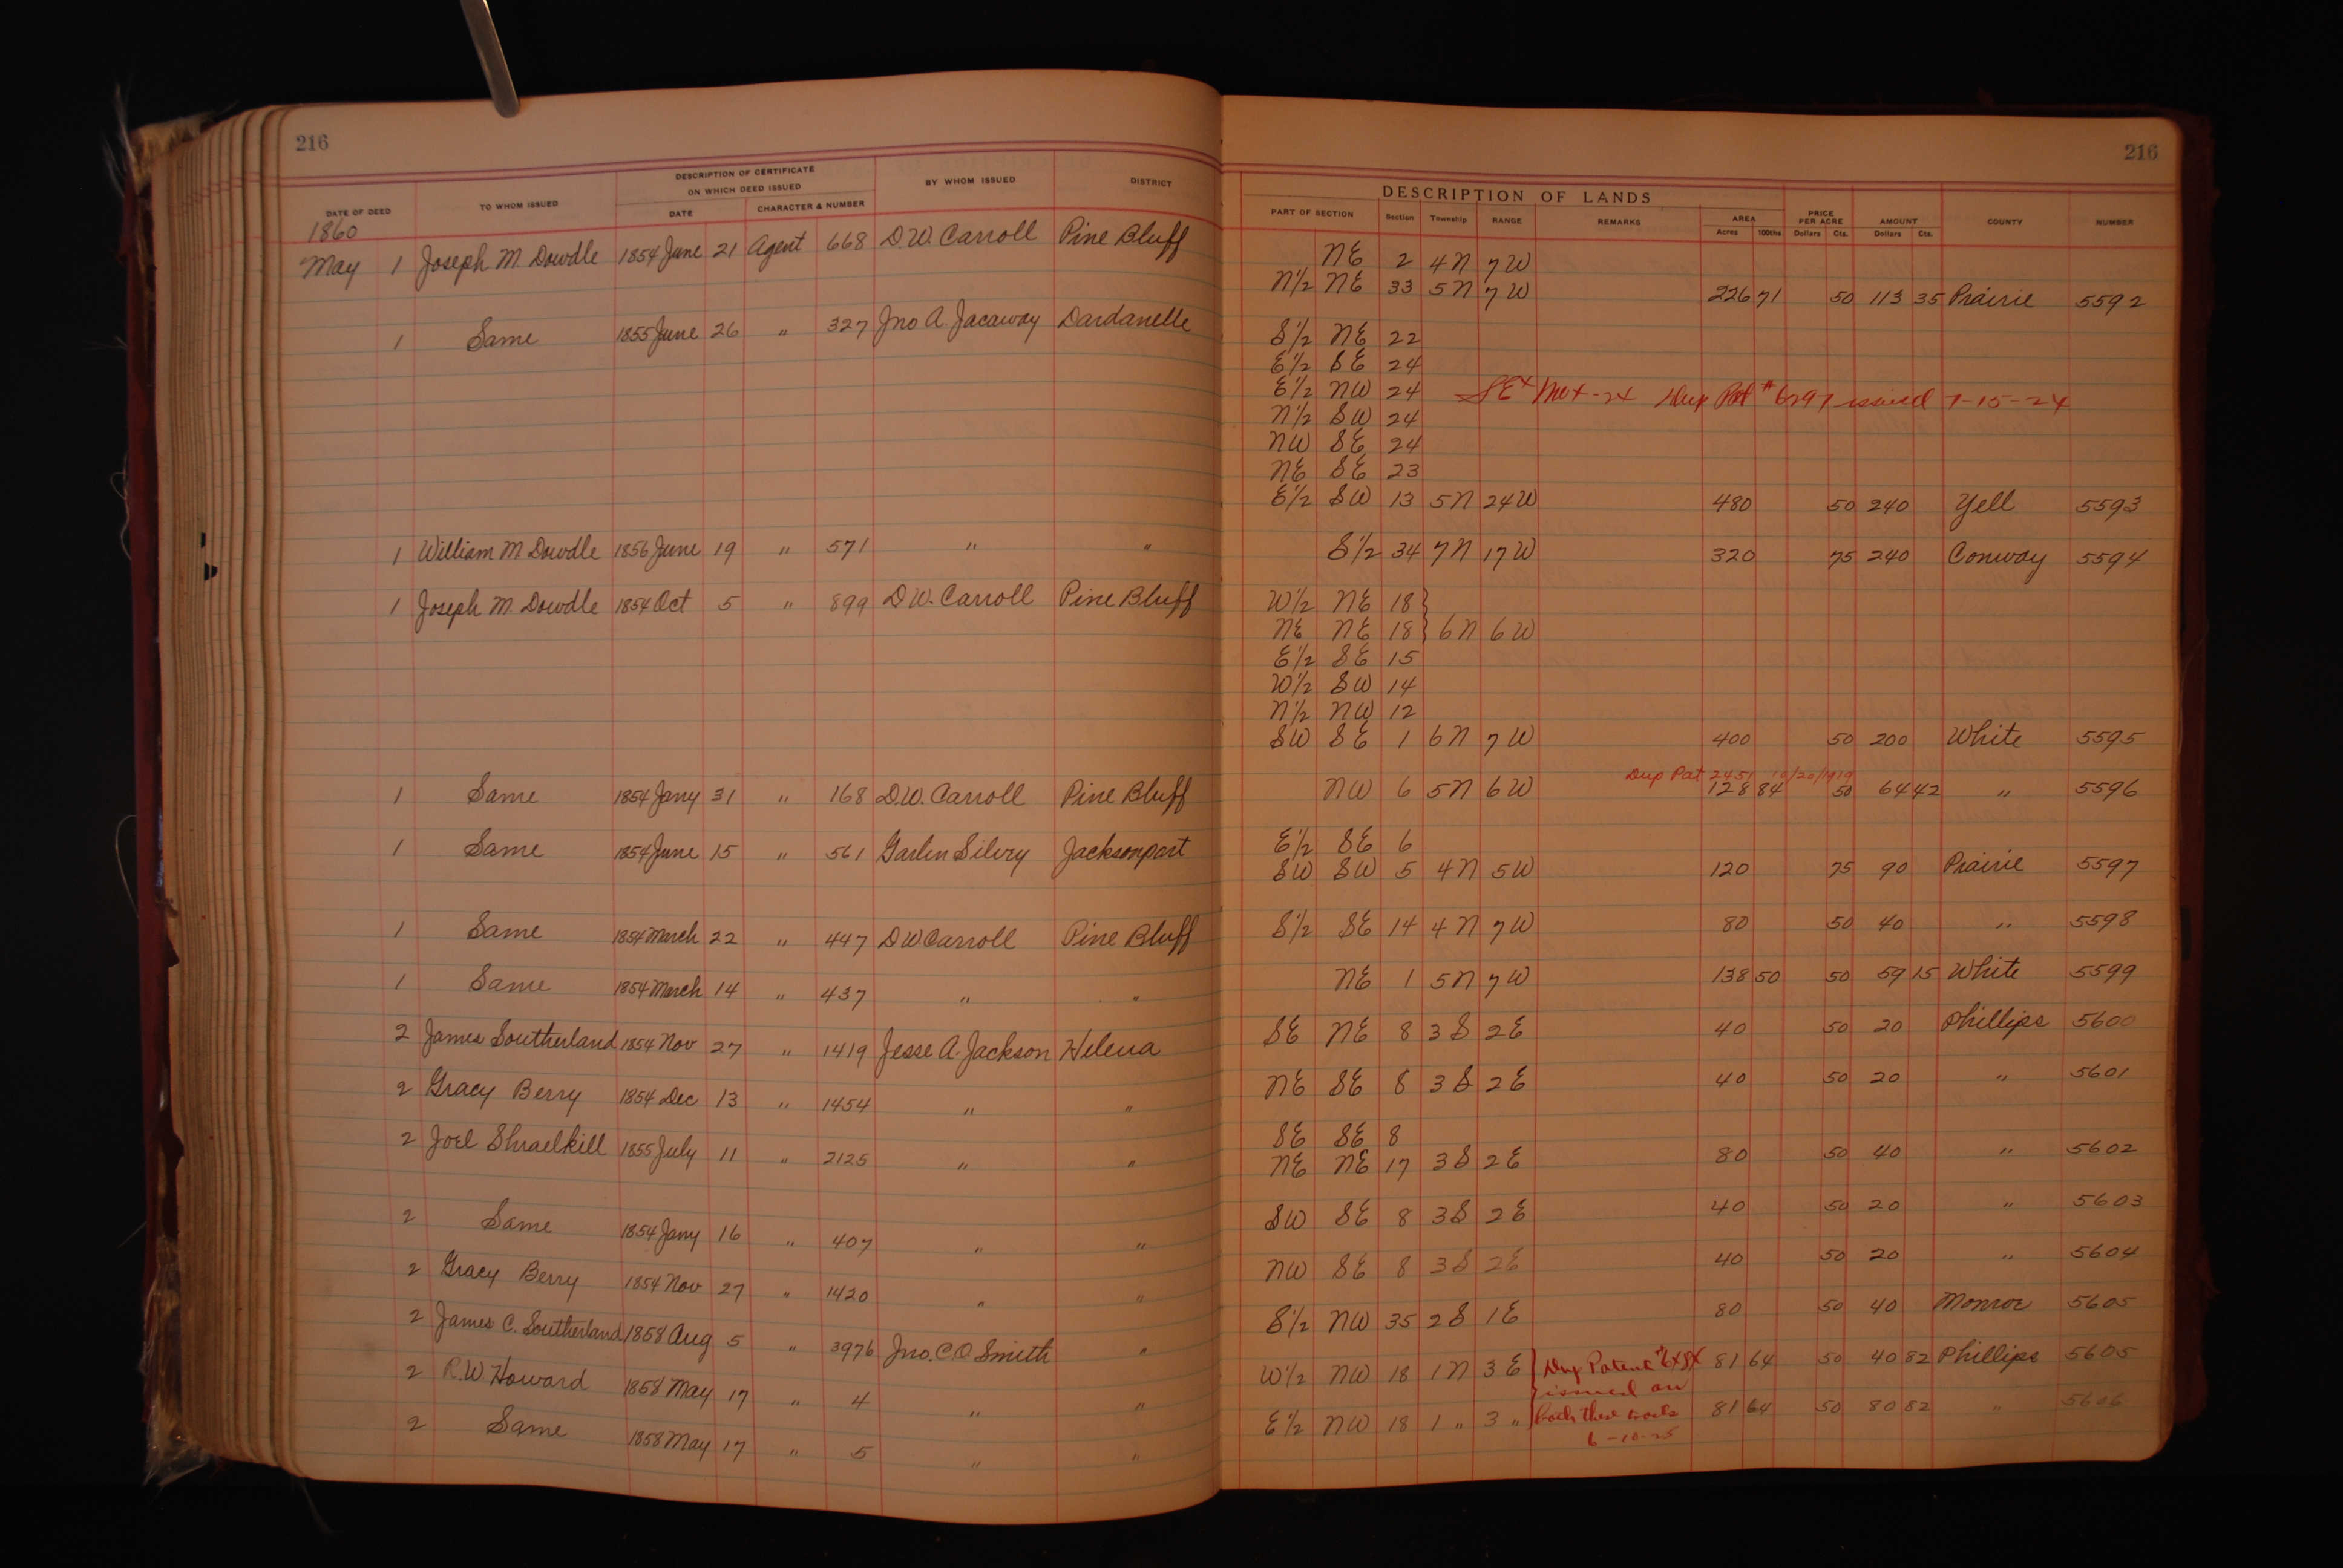 216
DATE OF DEED TO WHOM ISSUED DESCRIPTION OF CERTIFICATE ON WHICH DEED ISSUED DATE CHARACTER & NUMBER BY WHOM ISSUED DISTRICT
1860
May 1 Joseph M Dowdle 1854 June 21 Agent 668 D.W. Carroll Pine Bluff
1 Same 1855 June 26 " 327 Jno A. Jacaway Dardanelle
1 William M Dowdle 1856 June 19 " 571 " "
1 Joseph M Dowdle 1854 Oct 5 " 899 D W. Carroll Pine Bluff
1 Same 1854 Jany 31 " 168 D.W. Carroll Pine Bluff
1 Same 1854 June 15 " 561 Garlin Silvey Jacksonport
1 Same 1854 March 22 " 447 D W Carroll Pine Bluff
1 Same 1854 March 14 " 437 " "
2 James Southerland 1854 Nov 27 " 1419 Jesse A. Jackson Helena
2 Gracy Berry 1854 Dec 13 " 1454 " "
2 Joel Shraelkill 1855 July 11 " 2125 " "
2 Same 1854 Jany 16 " 407 " "
2 Gracy Berry 1854 Nov 27 " 1420 " "
2 James C. Southerland 1858 Aug 5 " 3976 Jno. C.O. Smith "
2 R.W. Howard 1858 May 17 " 4 " "
2 Same 1858 May 17 " 5 " "
216
DESCRIPTION OF LANDS
PART OF SECTION Section Township RANGE REMARKS AREA Acres 100ths PRICE PER ACRE Dollars Cts. AMOUNT Dollars Cts. COUNTY NUMBER
NE 2 4N 7W
N½ NE 33 5N 7W 226 71 50 113 35 Prairie 5592
S½ NE 22
E½ SE 24
E½ NW 24 Dup Pat # issued 7-15-24
N½ SW 24
NW SE 24
NE SE 23
E½ SW 13 5N 24W 480 50 240 Yell 5593
S½ 34 7N 17W 320 75 240 Conway 5594
W½ NE 18
NE NE 18 6N 6W
E½ SE 15
W½ SW 14
N½ NW 12
SW SE 1 6N 7W 400 50 200 White 5595
Dup Pat 2451 10/20/1919
NW 6 5N 6W 128 84 50 64 42 " 5596
E½ SE 6
SW SW 5 4N 5W 120 75 90 Prairie 5597
S½ SE 14 4N 7W 80 50 40 " 5598
NE 1 5N 7W 138 50 50 59 15 White 5599
SE NE 8 3S 2E 40 50 20 Phillips 5600
NE SE 8 3S 2E 40 50 20 " 5601
SE SE 8
NE NE 17 3S 2E 80 50 40 " 5602
SW SE 8 3S 2E 40 50 20 " 5603
NW SE 8 3S 2E 40 50 20 " 5604
S½ NW 35 2S 1E 80 50 40 Monroe 5605
W½ NW 18 1N 3E Dup Patent 81 64 50 40 82 Phillips 5605
issued on
E½ NW 18 1 " 3 " both these tracts 81 64 50 80 82 " 5606
6-10-25